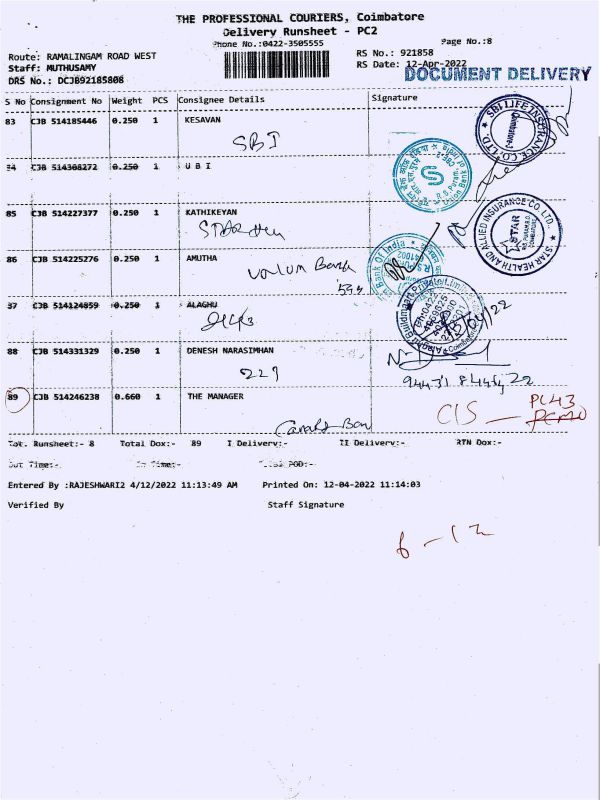 THE PROFESSIONAL COURIERS, Coimbatore
Delivery Runsheet - PC2
Phone No.:0422-3505555
Page No.:8
Route: RAMALINGAM ROAD WEST
RS No.: 921858
Staff: MUTHUSAMY
RS Date: 12-Apr-2022
DRS No.: DCJB92185808
DOCUMENT DELIVERY
S No Consignment No Weight PCS Consignee Details Signature
83 CJB 514185446 0.250 1 KESAVAN
SBI
SBI LIFE INSURANCE CO. LTD.
84 CJB 514308272 0.250 1 U B I
Union Bank
R.S. Puram
85 CJB 514227377 0.250 1 KATHIKEYAN
STAR
STAR HEALTH AND ALLIED INSURANCE CO. LTD.,
STAR
86 CJB 514225276 0.250 1 AMUTHA
Bank
Bank Of India
37 CJB 514124859 0.250 1 ALAGHU
Alaghu Buildmaart Private Limited
88 CJB 514331329 0.250 1 DENESH NARASIMHAN
221
89 CJB 514246238 0.660 1 THE MANAGER
CIS — PC43
Tot. Runsheet:- 8 Total Dox:- 89 I Delivery:- II Delivery:- RTN Dox:-
Out Time:- In Time:- Total POD:-
Entered By :RAJESHWARI2 4/12/2022 11:13:49 AM Printed On: 12-04-2022 11:14:03
Verified By Staff Signature
6-12